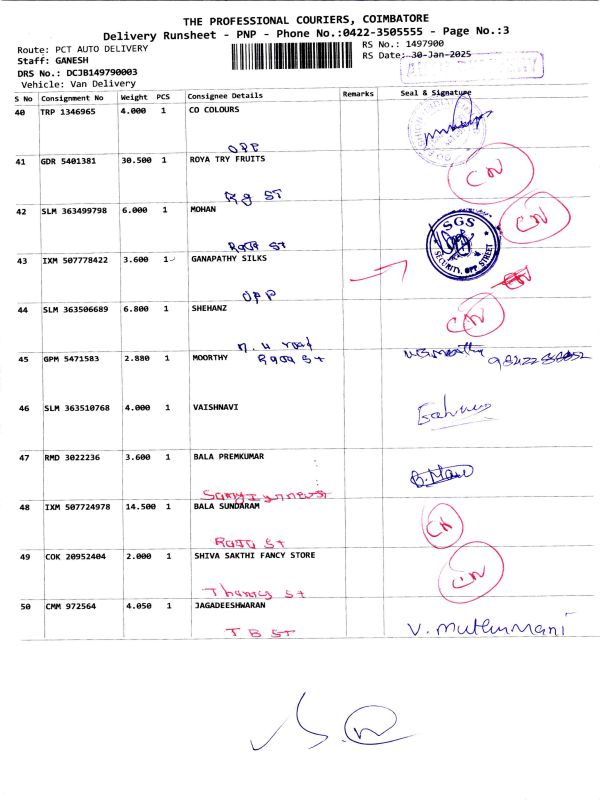 THE PROFESSIONAL COURIERS, COIMBATORE
Delivery Runsheet - PNP - Phone No.:0422-3505555 - Page No.:3
Route: PCT AUTO DELIVERY
RS No.: 1497900
Staff: GANESH
RS Date: 30-Jan-2025
DRS No.: DCJB149790003
Vehicle: Van Delivery
S No Consignment No Weight PCS Consignee Details Remarks Seal & Signature
40 TRP 1346965 4.000 1 CO COLOURS
OPP
41 GDR 5401381 30.500 1 ROYA TRY FRUITS
CN
Rg ST
42 SLM 363499798 6.000 1 MOHAN
CN
Raja St
SGS
43 IXM 507778422 3.600 1 GANAPATHY SILKS
SECURITY, OPP STREET
OPP
CN
44 SLM 363506689 6.800 1 SHEHANZ
CN
45 GPM 5471583 2.880 1 MOORTHY
Raja St
46 SLM 363510768 4.000 1 VAISHNAVI
47 RMD 3022236 3.600 1 BALA PREMKUMAR
48 IXM 507724978 14.500 1 BALA SUNDARAM
CN
Raja St
49 COK 20952404 2.000 1 SHIVA SAKTHI FANCY STORE
CN
50 CMM 972564 4.050 1 JAGADEESHWARAN
TB ST
V. Muthumani